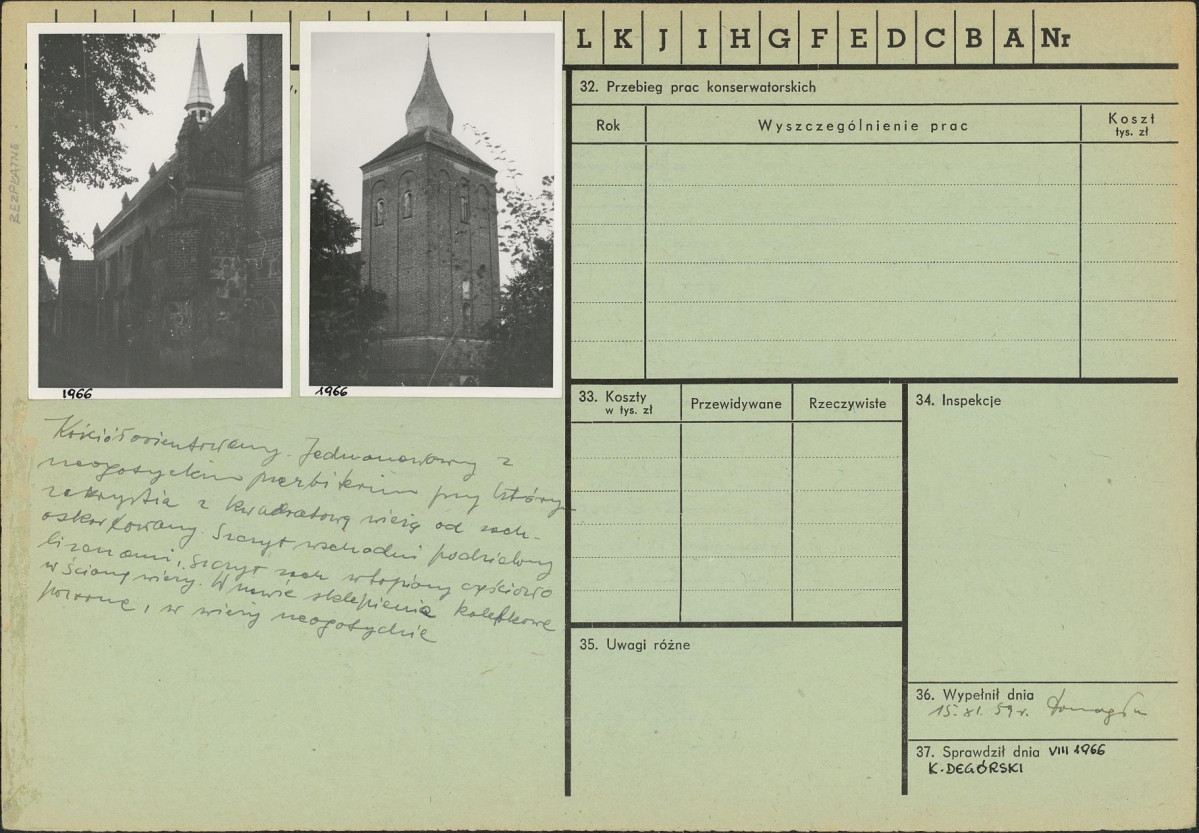 L K J I H G F E D C B A Nr
BEZPŁATNE
1966
1966
Kościół orientowany. Jednonawowy z
neogotyckim prezbiterium przy którym
zakrystia z kwadratową wieżą od zach-
oskarpowany. Szczyt wschodni podzielony
lizenami, szczyt zach wtopiony częściowo
w ścianę wieży. W nawie sklepienia kolebkowe
pozorne, w wieży neogotyckie
32. Przebieg prac konserwatorskich
Rok
Wyszczególnienie prac
Koszt
tys. zł
33. Koszty
w tys. zł
Przewidywane
Rzeczywiste
34. Inspekcje
35. Uwagi różne
36. Wypełnił dnia
15. XI. 59 r.
37. Sprawdził dnia VIII 1966
K. DEGÓRSKI